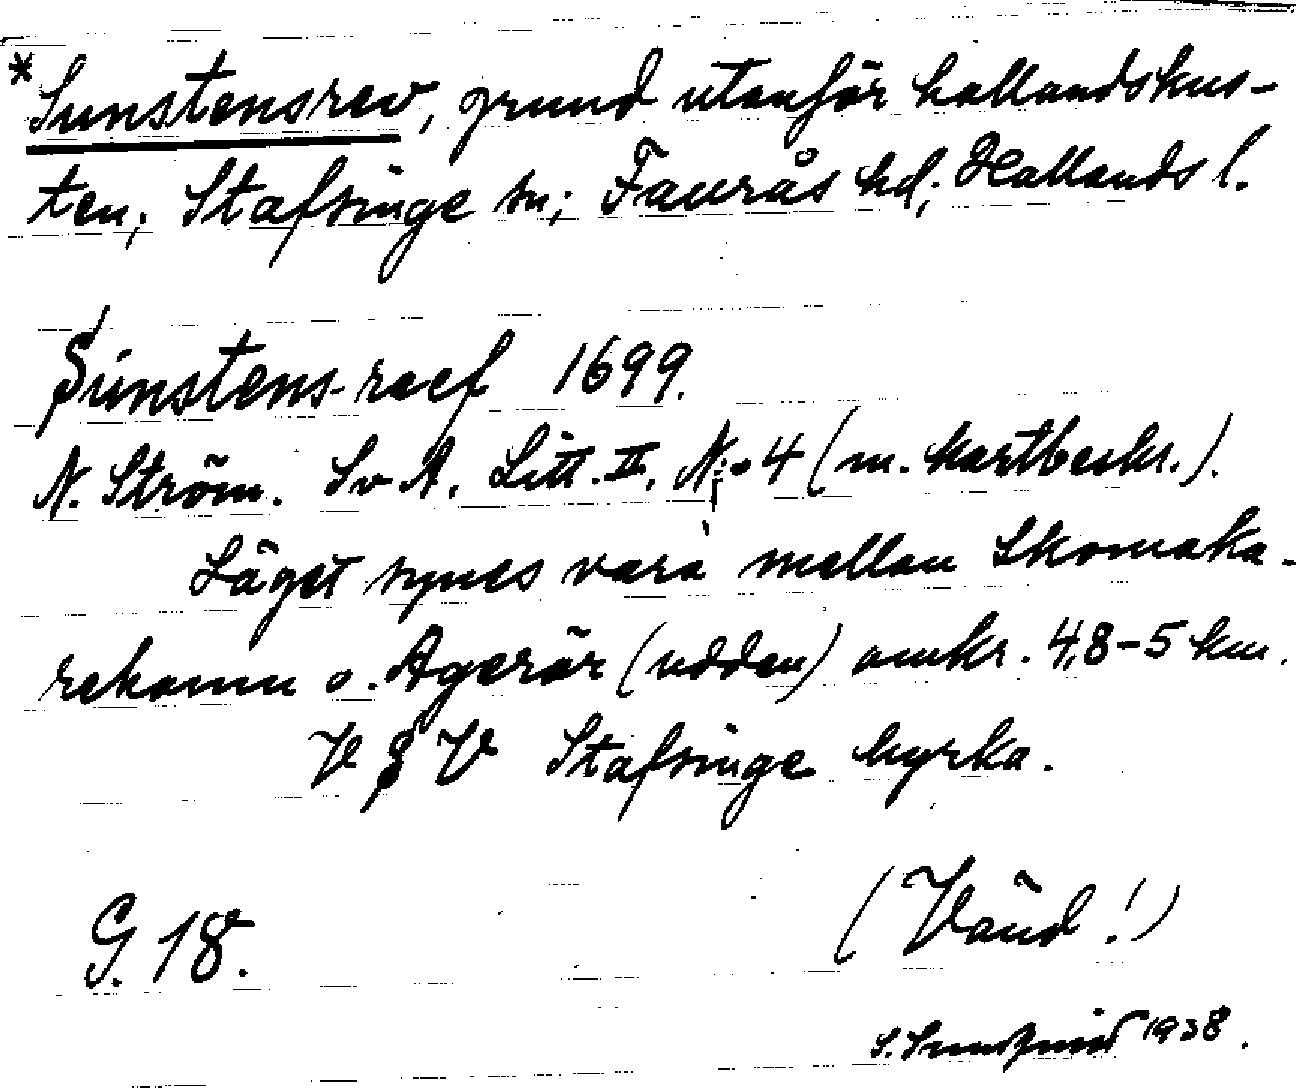 *Sunstensrev, grund utanför hallandskus-
ten, Stafsinge sn; Faurås hd; Hallands l.
Sunstens-raef 1699.
N. Ström. Sv A. Litt. II. N:o 4 (m. kartbeskr.).
Läget synes vara mellan Skomaka-
rehamn o. Agerör (udden) omkr. 4,8-5 km.
V S V Stafsinge kyrka.
G. 18.
(Vänd!)
1938.